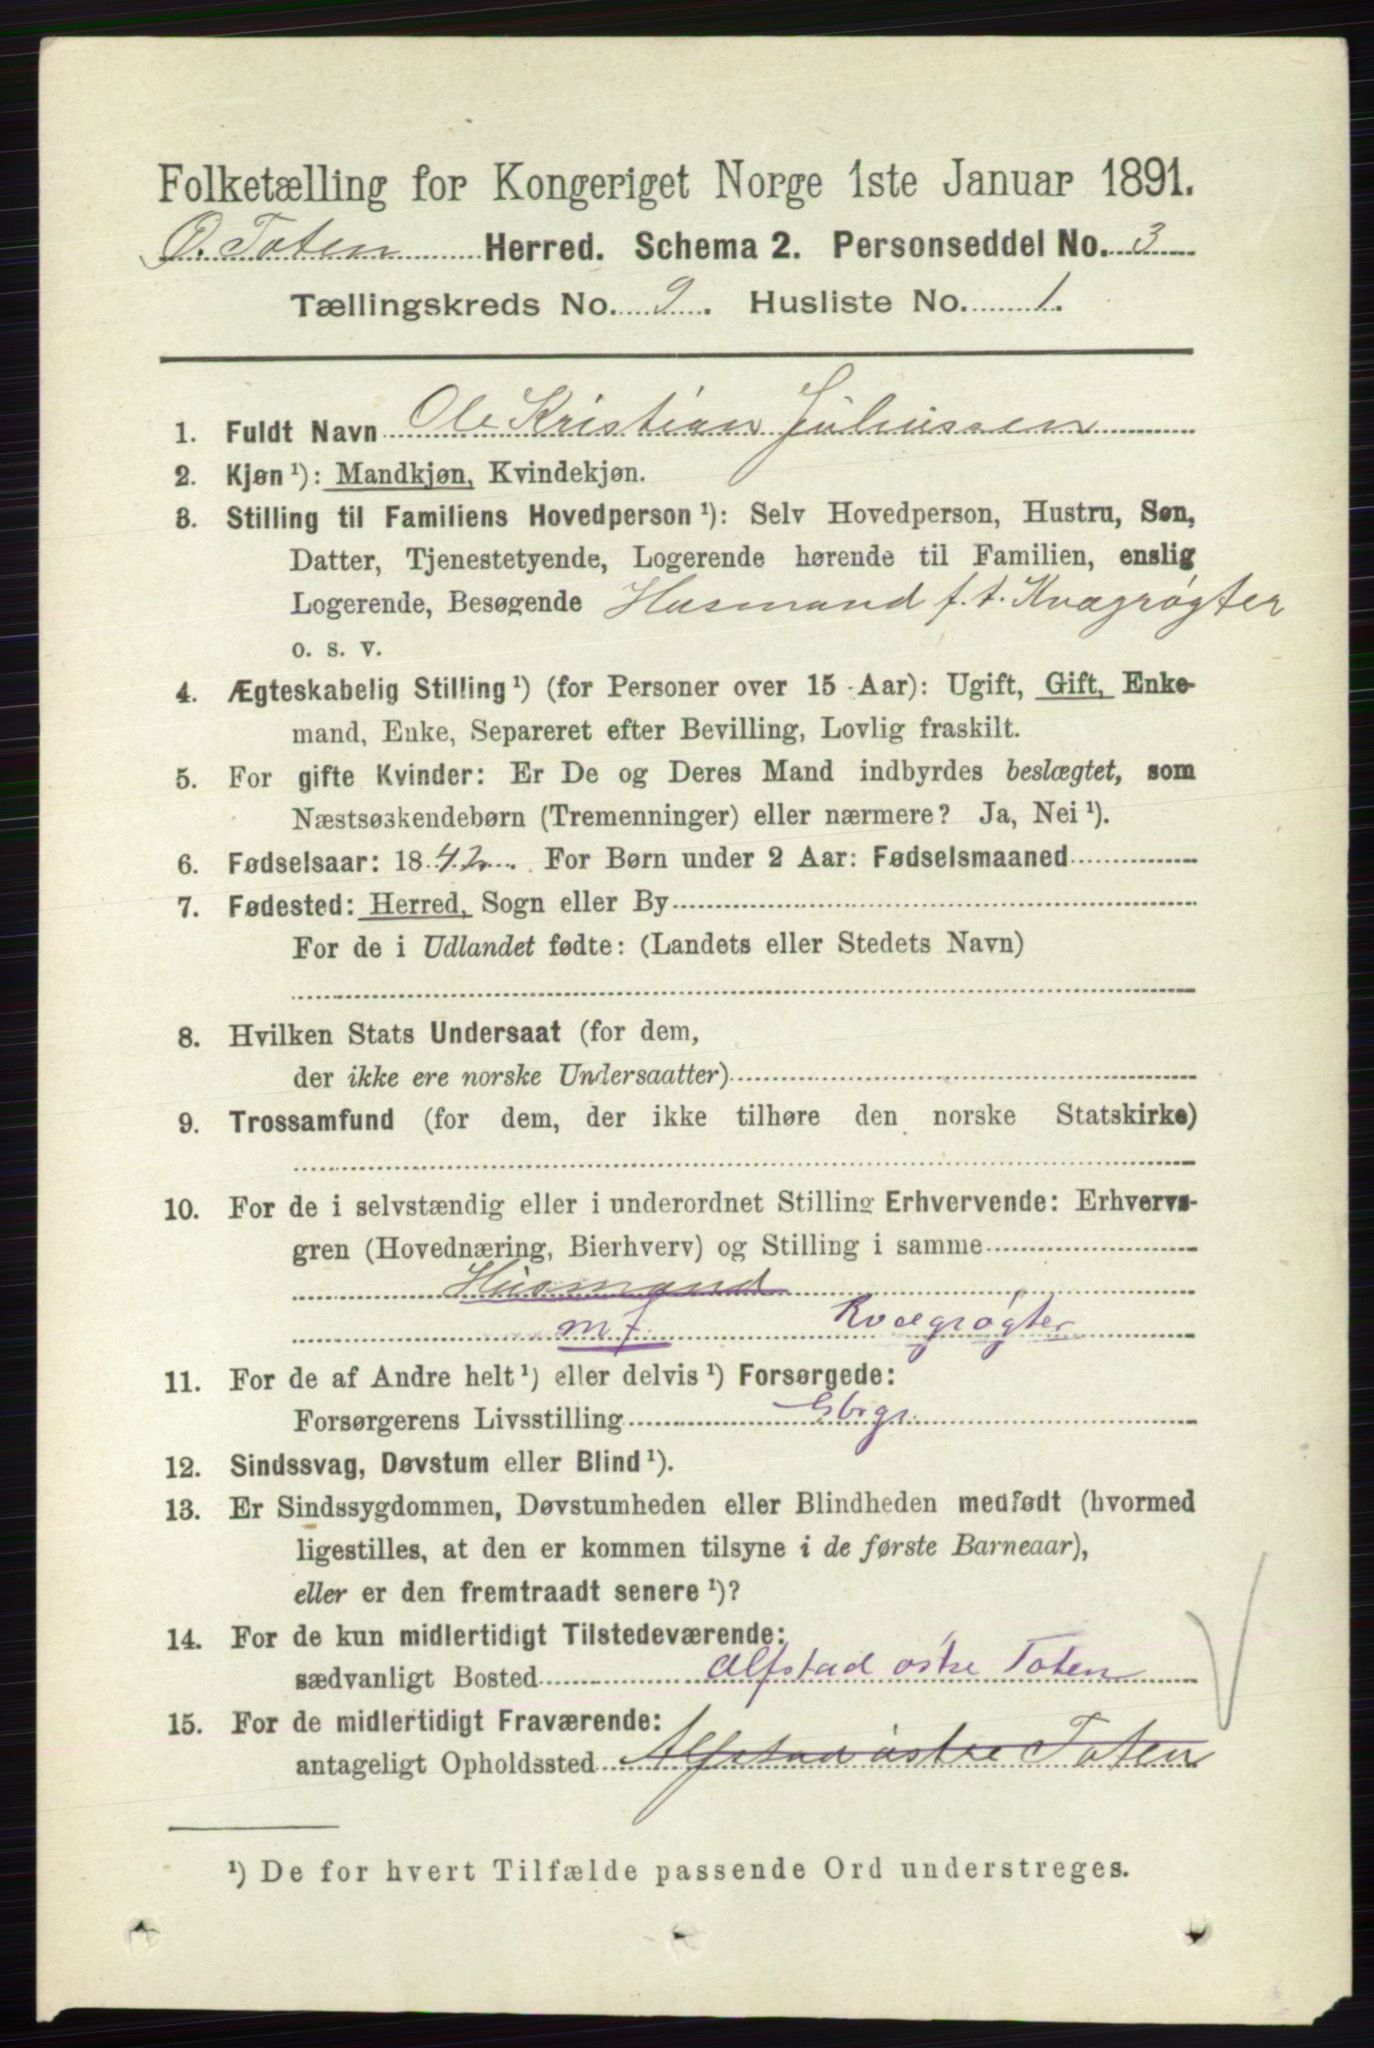 Folketælling for Kongeriget Norge 1ste Januar 1891.
Ø. Toten Herred. Schema 2. Personseddel No. 3
Tællingskreds No. 9. Husliste No. 1.
1. Fuldt Navn Ole Kristian Juliussen
2. Kjøn ¹): Mandkjøn, Kvindekjøn.
3. Stilling til Familiens Hovedperson ¹): Selv Hovedperson, Hustru, Søn,
Datter, Tjenestetyende, Logerende hørende til Familien, enslig
Logerende, Besøgende Husmand f. t. Kvægrøgter
o. s. v.
4. Ægteskabelig Stilling ¹) (for Personer over 15 Aar): Ugift, Gift, Enke-
mand, Enke, Separeret efter Bevilling, Lovlig fraskilt.
5. For gifte Kvinder: Er De og Deres Mand indbyrdes beslægtet, som
Næstsøskendebørn (Tremenninger) eller nærmere? Ja, Nei ¹).
6. Fødselsaar: 1842. For Børn under 2 Aar: Fødselsmaaned
7. Fødested: Herred, Sogn eller By
For de i Udlandet fødte: (Landets eller Stedets Navn)
8. Hvilken Stats Undersaat (for dem,
der ikke ere norske Undersaatter)
9. Trossamfund (for dem, der ikke tilhøre den norske Statskirke)
10. For de i selvstændig eller i underordnet Stilling Erhvervende: Erhvervs-
gren (Hovednæring, Bierhverv) og Stilling i samme
Husmand
m j. Kvægrøgter
11. For de af Andre helt ¹) eller delvis ¹) Forsørgede:
Forsørgerens Livsstilling Gbgr.
12. Sindssvag, Døvstum eller Blind ¹).
13. Er Sindssygdommen, Døvstumheden eller Blindheden medfødt (hvormed
ligestilles, at den er kommen tilsyne i de første Barneaar),
eller er den fremtraadt senere ¹)?
14. For de kun midlertidigt Tilstedeværende:
sædvanligt Bosted Alfstad østre Toten
15. For de midlertidigt Fraværende:
antageligt Opholdssted Alfstad østre Toten
¹) De for hvert Tilfælde passende Ord understreges.